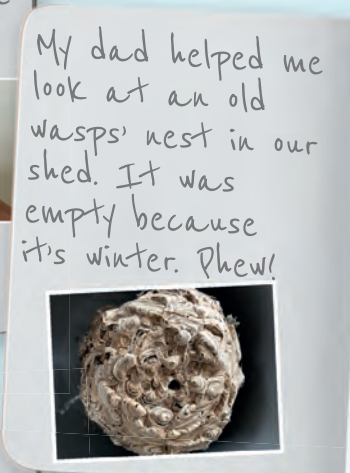 My dad helped me
look at an old
wasps' nest in our
shed. It was
empty because
it's winter. Phew!